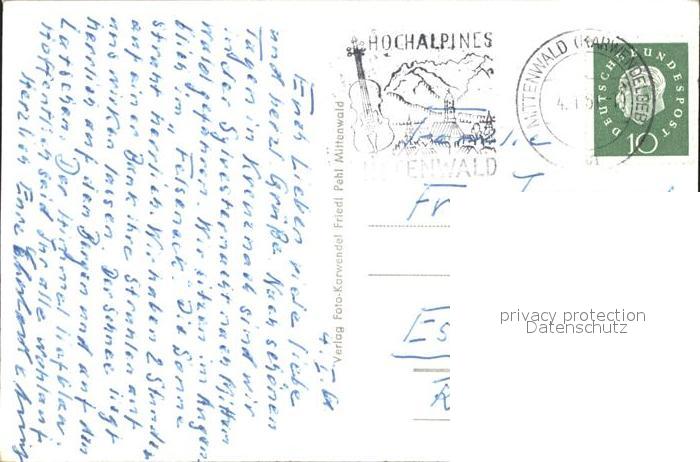 HOCHALPINES
MITTENWALD
MITTENWALD (KARWENDELGEB)
DEUTSCHE BUNDESPOST
10
Verlag Foto-Karwendel Friedl Pehl Mittenwald
4. I. 61
Euch Lieben viele liebe
und herzl. Grüße. Nach schönen
Tagen in Kreuznach sind wir
in der Sylvesternacht nach Mitten-
wald gefahren. Wir sitzen im Augen-
blick im. Die Sonne
strahlt herrlich. Wir haben 2 Stunden
auf einer Bank ihre Strahlen auf
uns wirken lassen. Der Schnee liegt
herrlich auf den Bergen und auf den
Latschen. Der Himmel tiefblau.
Hoffentlich seid Ihr alle wohlauf
Herzlich Eure
Fr
Es
privacy protection
Datenschutz